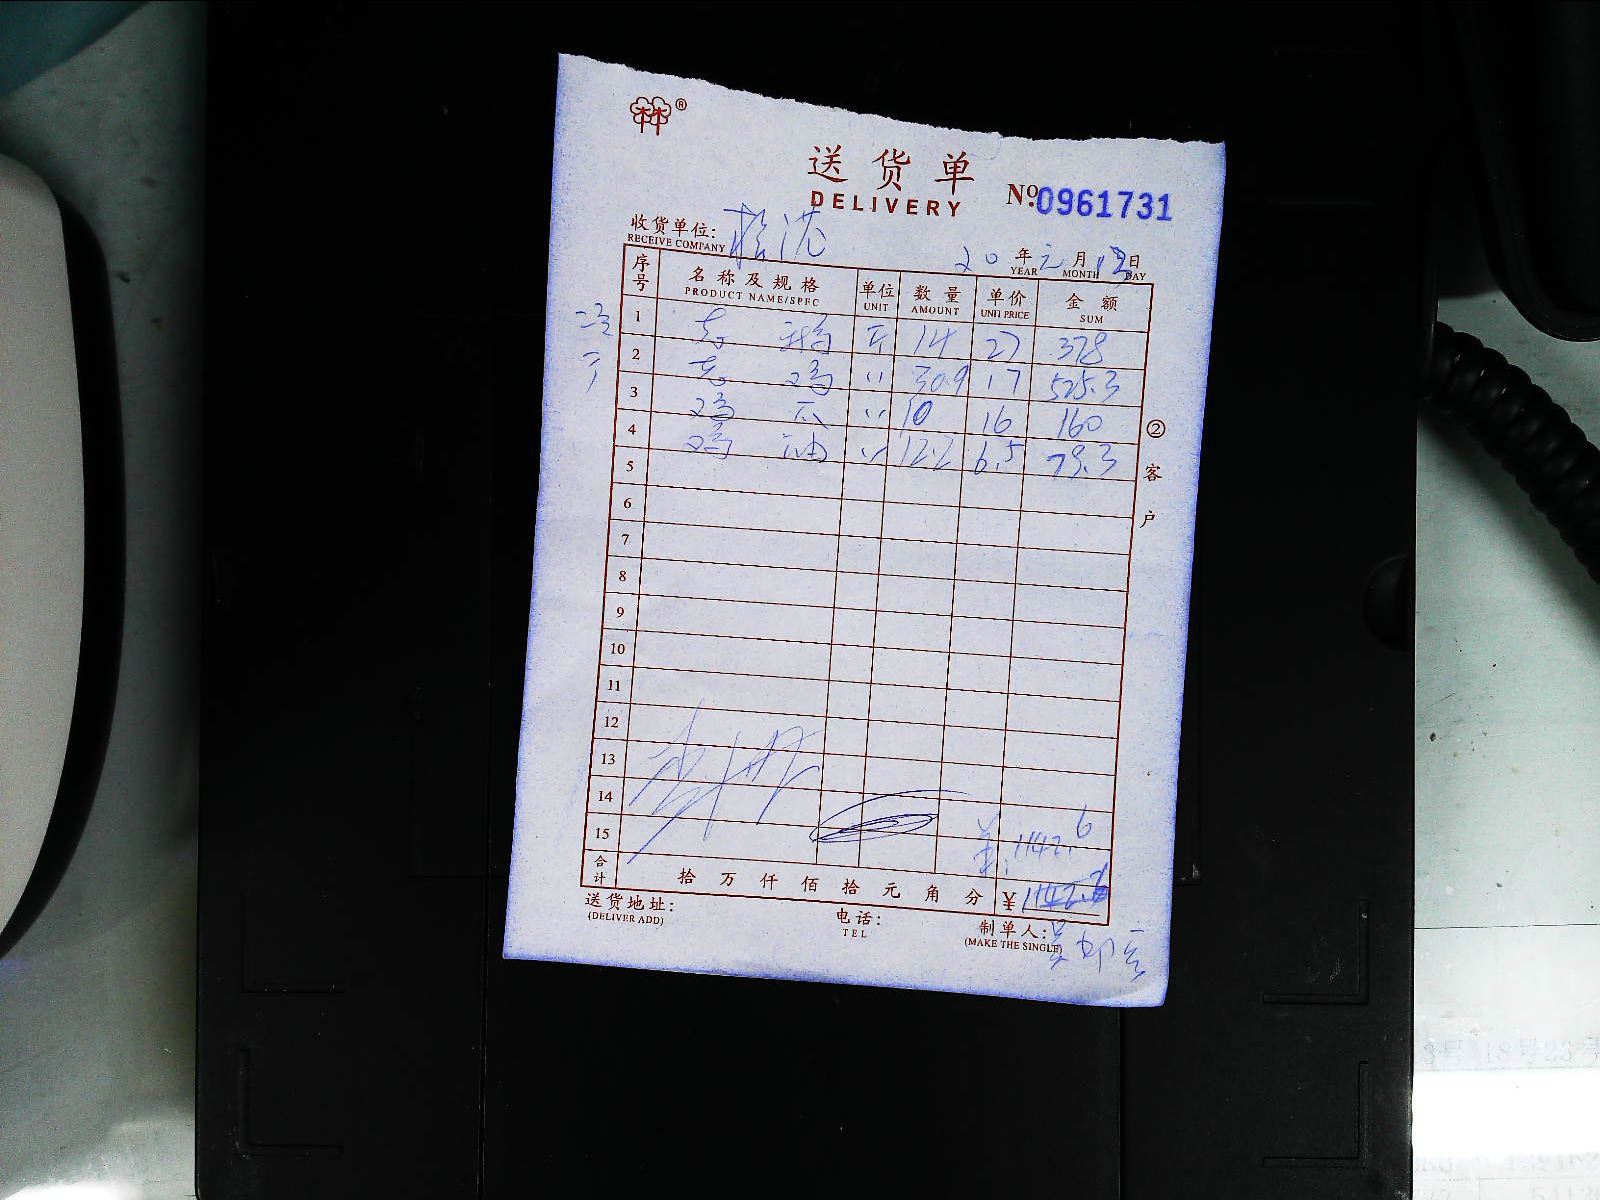 ®
送货单
DELIVERY
№:0961731
收货单位:
RECEIVE COMPANY
20年元月13日
YEAR MONTH DAY
序号 名称及规格 单位 数量 单价 金额
PRODUCT NAME/SPEC UNIT AMOUNT UNIT PRICE SUM
1 光 鹅 斤 14 27 378
2 光 鸡 〃 30.9 17 525.3
3 鸡 爪 〃 10 16 160
4 鸡 油 〃 12.2 6.5 79.3
5
6
7
8
9
10
11
12
13
14
15 1142.6
合计 拾万仟佰拾元角分 ¥1142.6
②客户
送货地址: 电话: 制单人:
(DELIVER ADD) TEL (MAKE THE SINGLE)